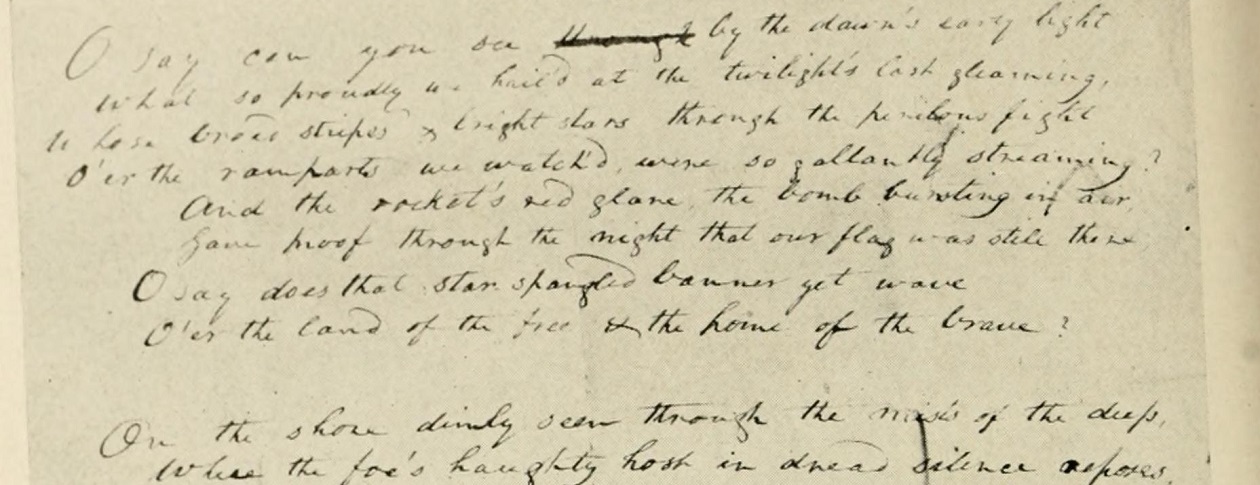 O say can you see ~~through~~ by the dawn's early light
What so proudly we hail'd at the twilight's last gleaming,
Whose broad stripes & bright stars through the perilous fight
O'er the ramparts we watch'd, were so gallantly streaming?
And the rocket's red glare, the bomb bursting in air,
Gave proof through the night that our flag was still there
O say does that star spangled banner yet wave
O'er the land of the free & the home of the brave?
On the shore dimly seen through the mists of the deep,
Where the foe's haughty host in dread silence reposes,